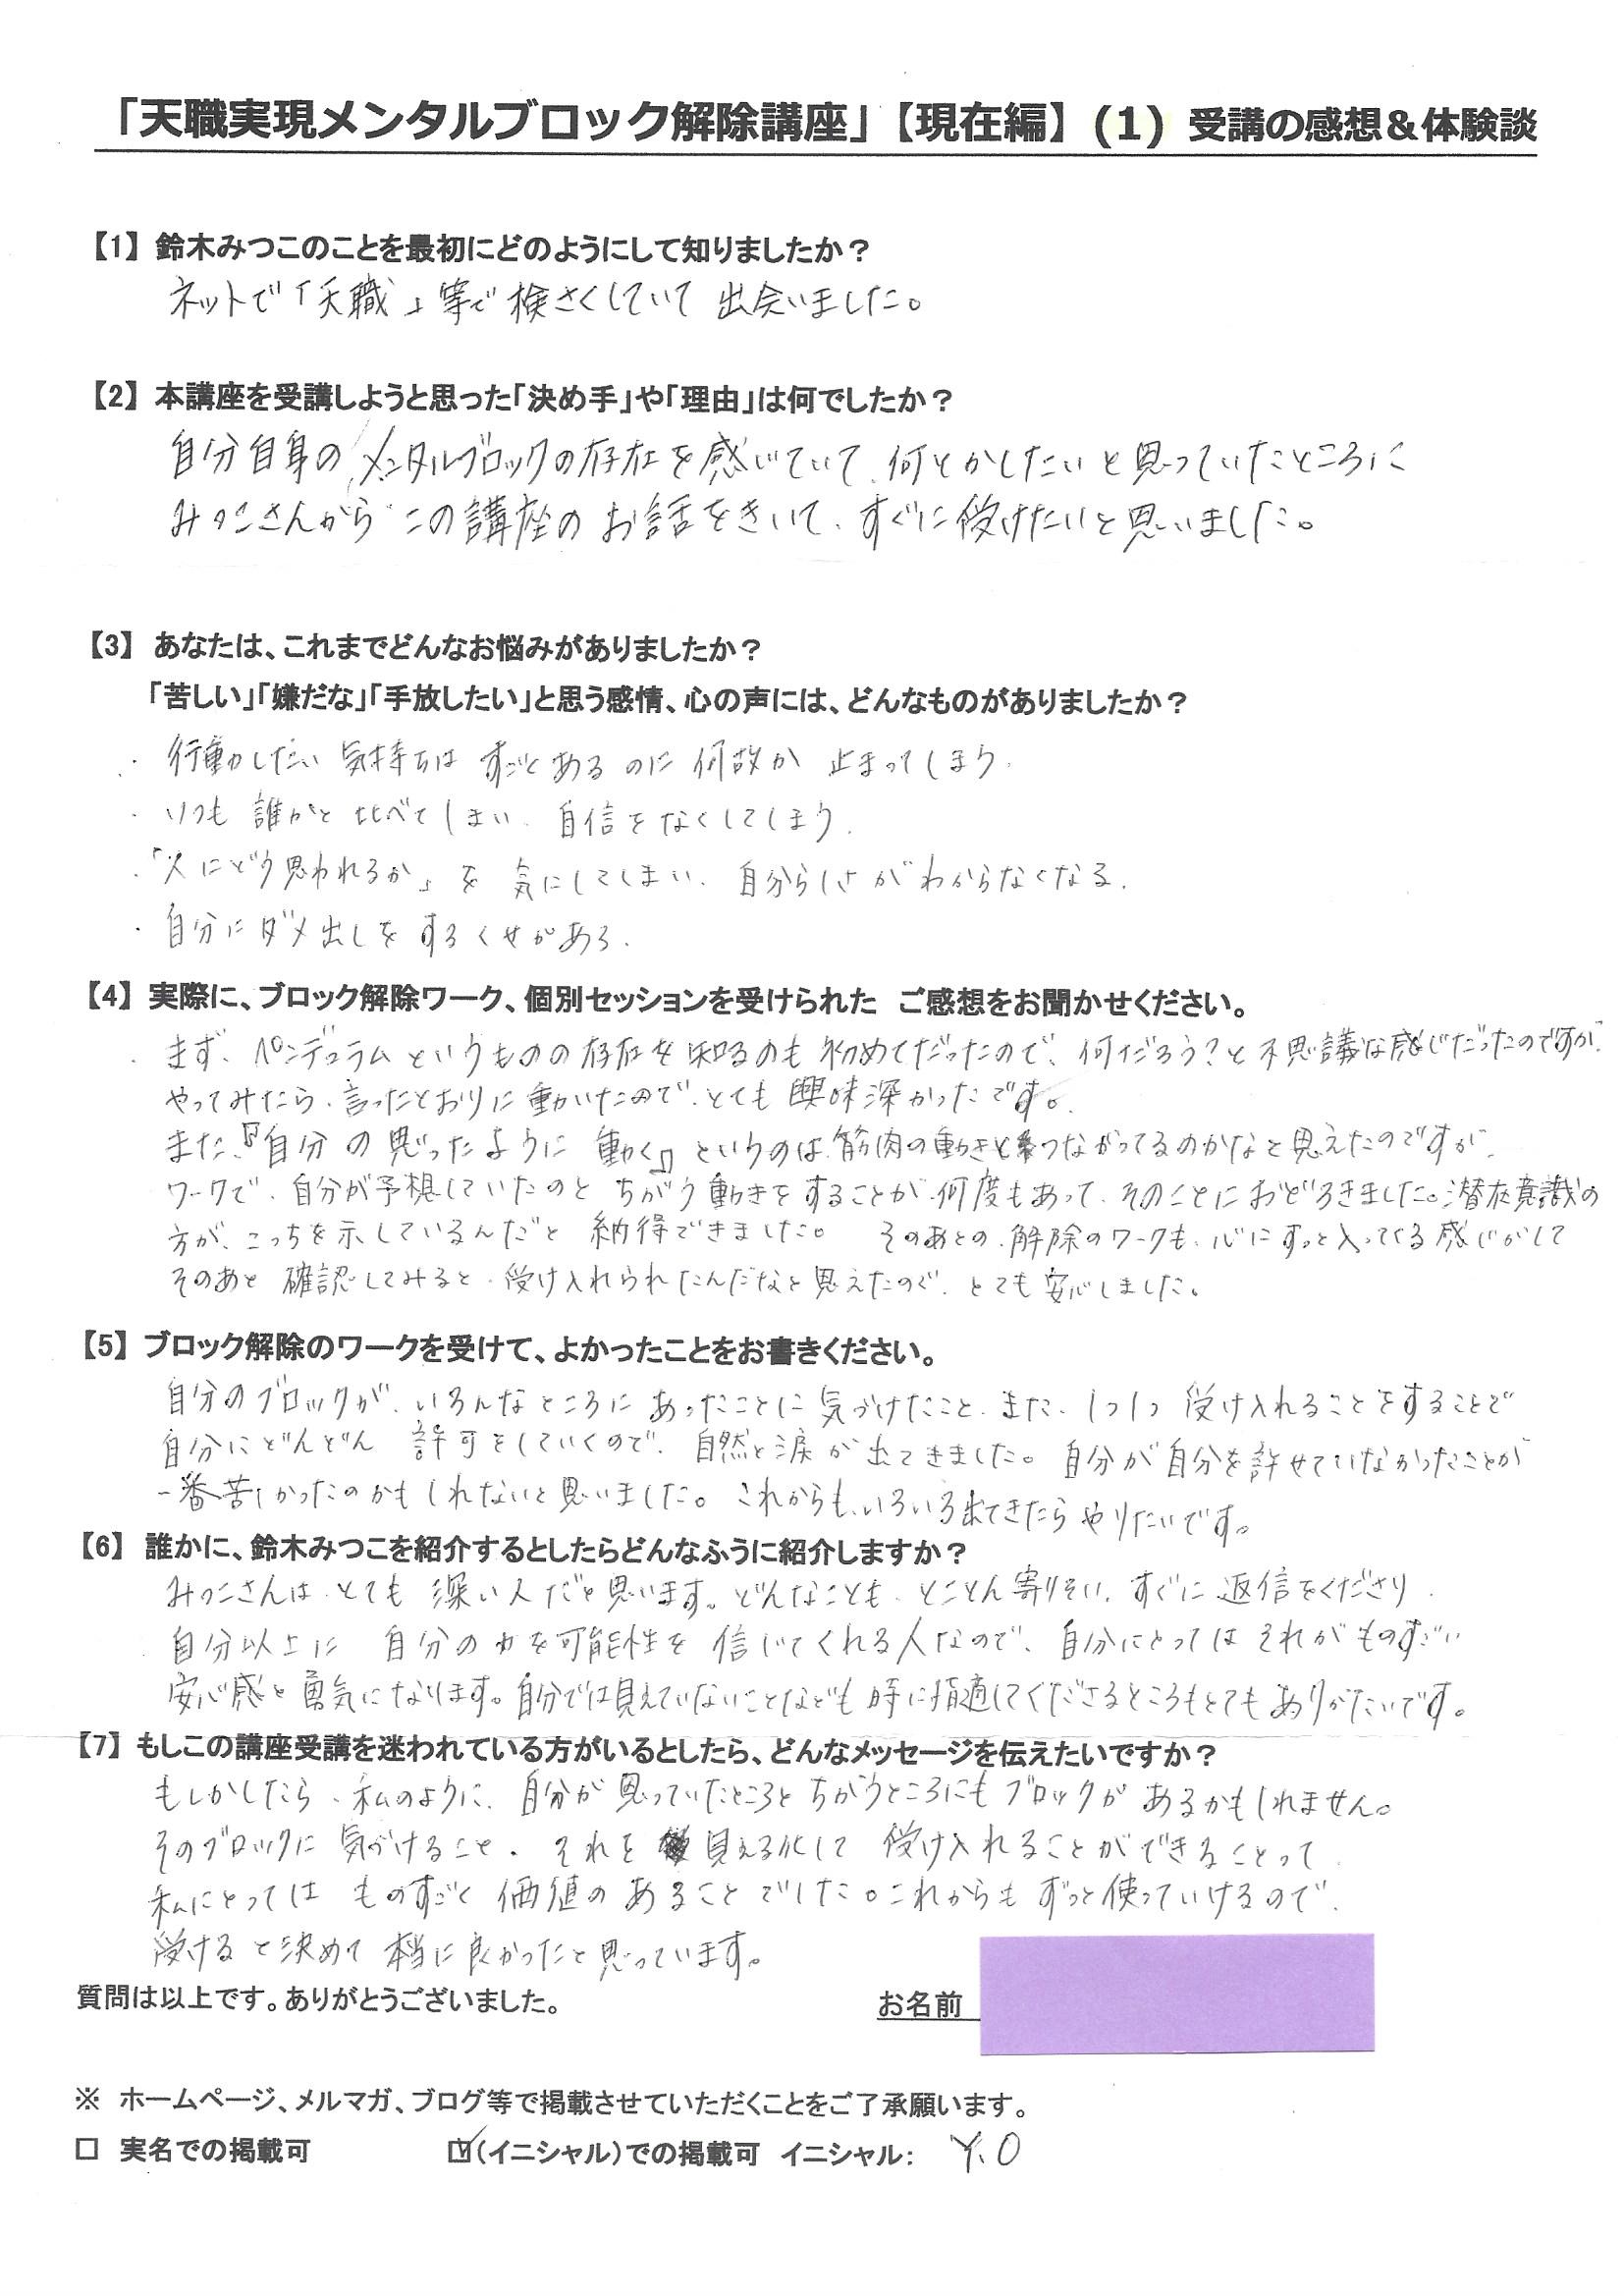 「天職実現メンタルブロック解除講座」【現在編】(1) 受講の感想＆体験談
【1】 鈴木みつこのことを最初にどのようにして知りましたか？
ネットで「天職」等で検さくしていて 出会いました。
【2】 本講座を受講しようと思った「決め手」や「理由」は何でしたか？
自分自身のメンタルブロックの存在を感じていて、何とかしたいと思っていたところに
みつこさんから この講座の お話をきいて、すぐに受けたいと思いました。
【3】 あなたは、これまでどんなお悩みがありましたか？
「苦しい」「嫌だな」「手放したい」と思う感情、心の声には、どんなものがありましたか？
・行動したい 気持ちは すごくあるのに 何故か 止まってしまう.
・いつも 誰かと 比べてしまい、自信をなくしてしまう.
・「人にどう思われるか」を 気にしてしまい、自分らしさがわからなくなる.
・自分にダメ出しを するくせがある.
【4】 実際に、ブロック解除ワーク、個別セッションを受けられた ご感想をお聞かせください。
・まず、ペンデュラムというものの存在を知るのも初めてだったので、何だろう？と不思議な感じだったのですが、
やってみたら、言ったとおりに動いたので、とても興味深かったです。
また、『自分の思ったように 動く』というのは、筋肉の動きとつながってるのかなと思えたのですが、
ワークで、自分が予想していたのと ちがう動きをすることが、何度もあって、そのことにおどろきました。潜在意識の
方が、こっちを示しているんだと 納得できました。 そのあとの、解除のワークも、心にすっと入ってくる感じがして
そのあと 確認してみると、受け入れられたんだなと思えたので、とても安心しました。
【5】 ブロック解除のワークを受けて、よかったことをお書きください。
自分のブロックが、いろんなところに あったことに気づけたこと、また、1つ1つ 受け入れることをすることで
自分にどんどん 許可をしていくので、自然と涙が出てきました。自分が自分を許せていなかったことが
一番苦しかったのかもしれないと思いました。これからも、いろいろ出てきたらやりたいです。
【6】 誰かに、鈴木みつこを紹介するとしたらどんなふうに紹介しますか？
みつこさんは、とても 深い人だと思います。どんなことも、とことん寄りそい、すぐに 返信をくださり、
自分以上に 自分の力を可能性を 信じてくれる人なので、自分にとっては それが ものすごい
安心感と勇気になります。自分では見えていないことなども 時に指適してくださるところもとてもありがたいです。
【7】 もしこの講座受講を迷われている方がいるとしたら、どんなメッセージを伝えたいですか？
もしかしたら、私のように、自分が思っていたところと ちがうところにもブロックが あるかもしれません。
そのブロックに 気づけること、それを 見える化して 受け入れることができることって
私にとっては ものすごく 価値の あることでした。これからも ずっと使っていけるので、
受けると決めて 本当に良かったと思っています。
質問は以上です。ありがとうございました。
お名前
※ ホームページ、メルマガ、ブログ等で掲載させていただくことをご了承願います。
□ 実名での掲載可 ☑（イニシャル）での掲載可 イニシャル： Y.O